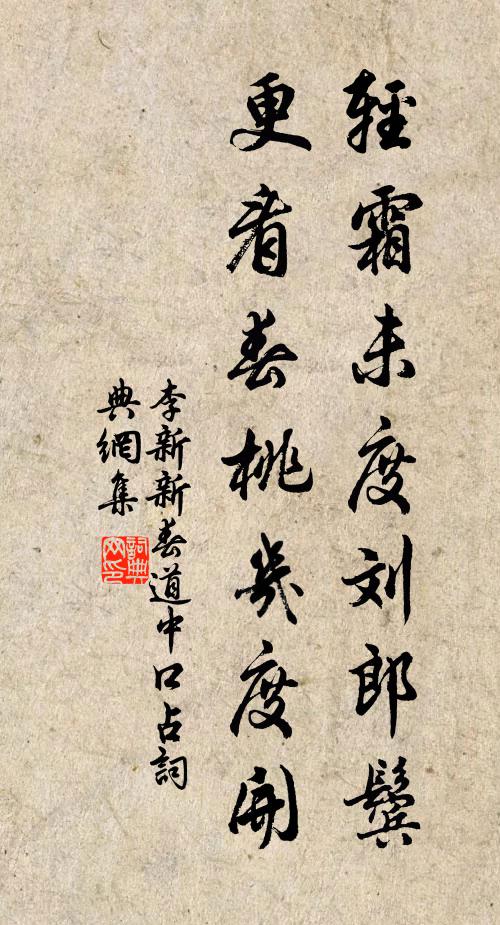 輕霜未度刘郎鬓
更看春桃幾度開
李新新春道中口占詞
典網集
詞典
网印